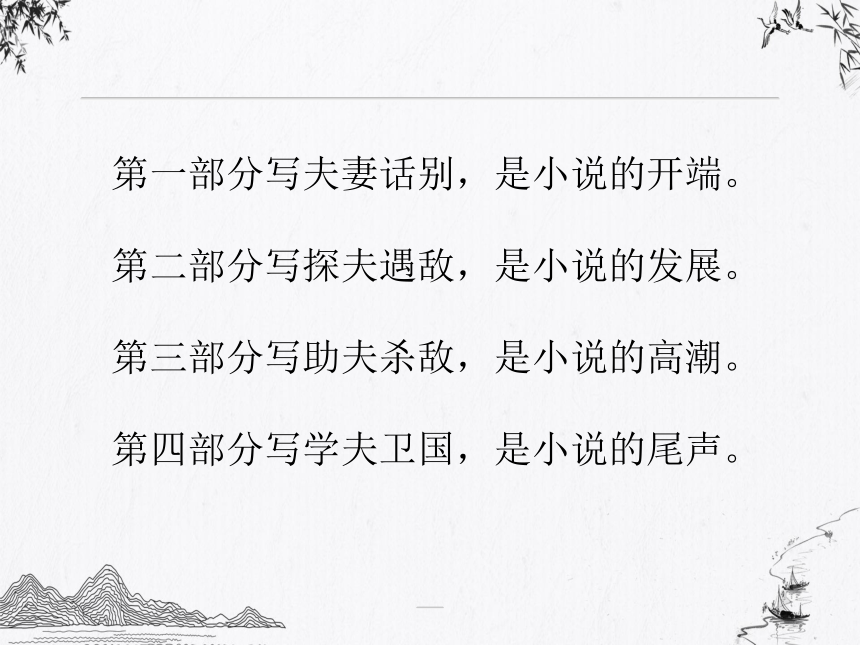 第一部分写夫妻话别，是小说的开端。
第二部分写探夫遇敌，是小说的发展。
第三部分写助夫杀敌，是小说的高潮。
第四部分写学夫卫国，是小说的尾声。